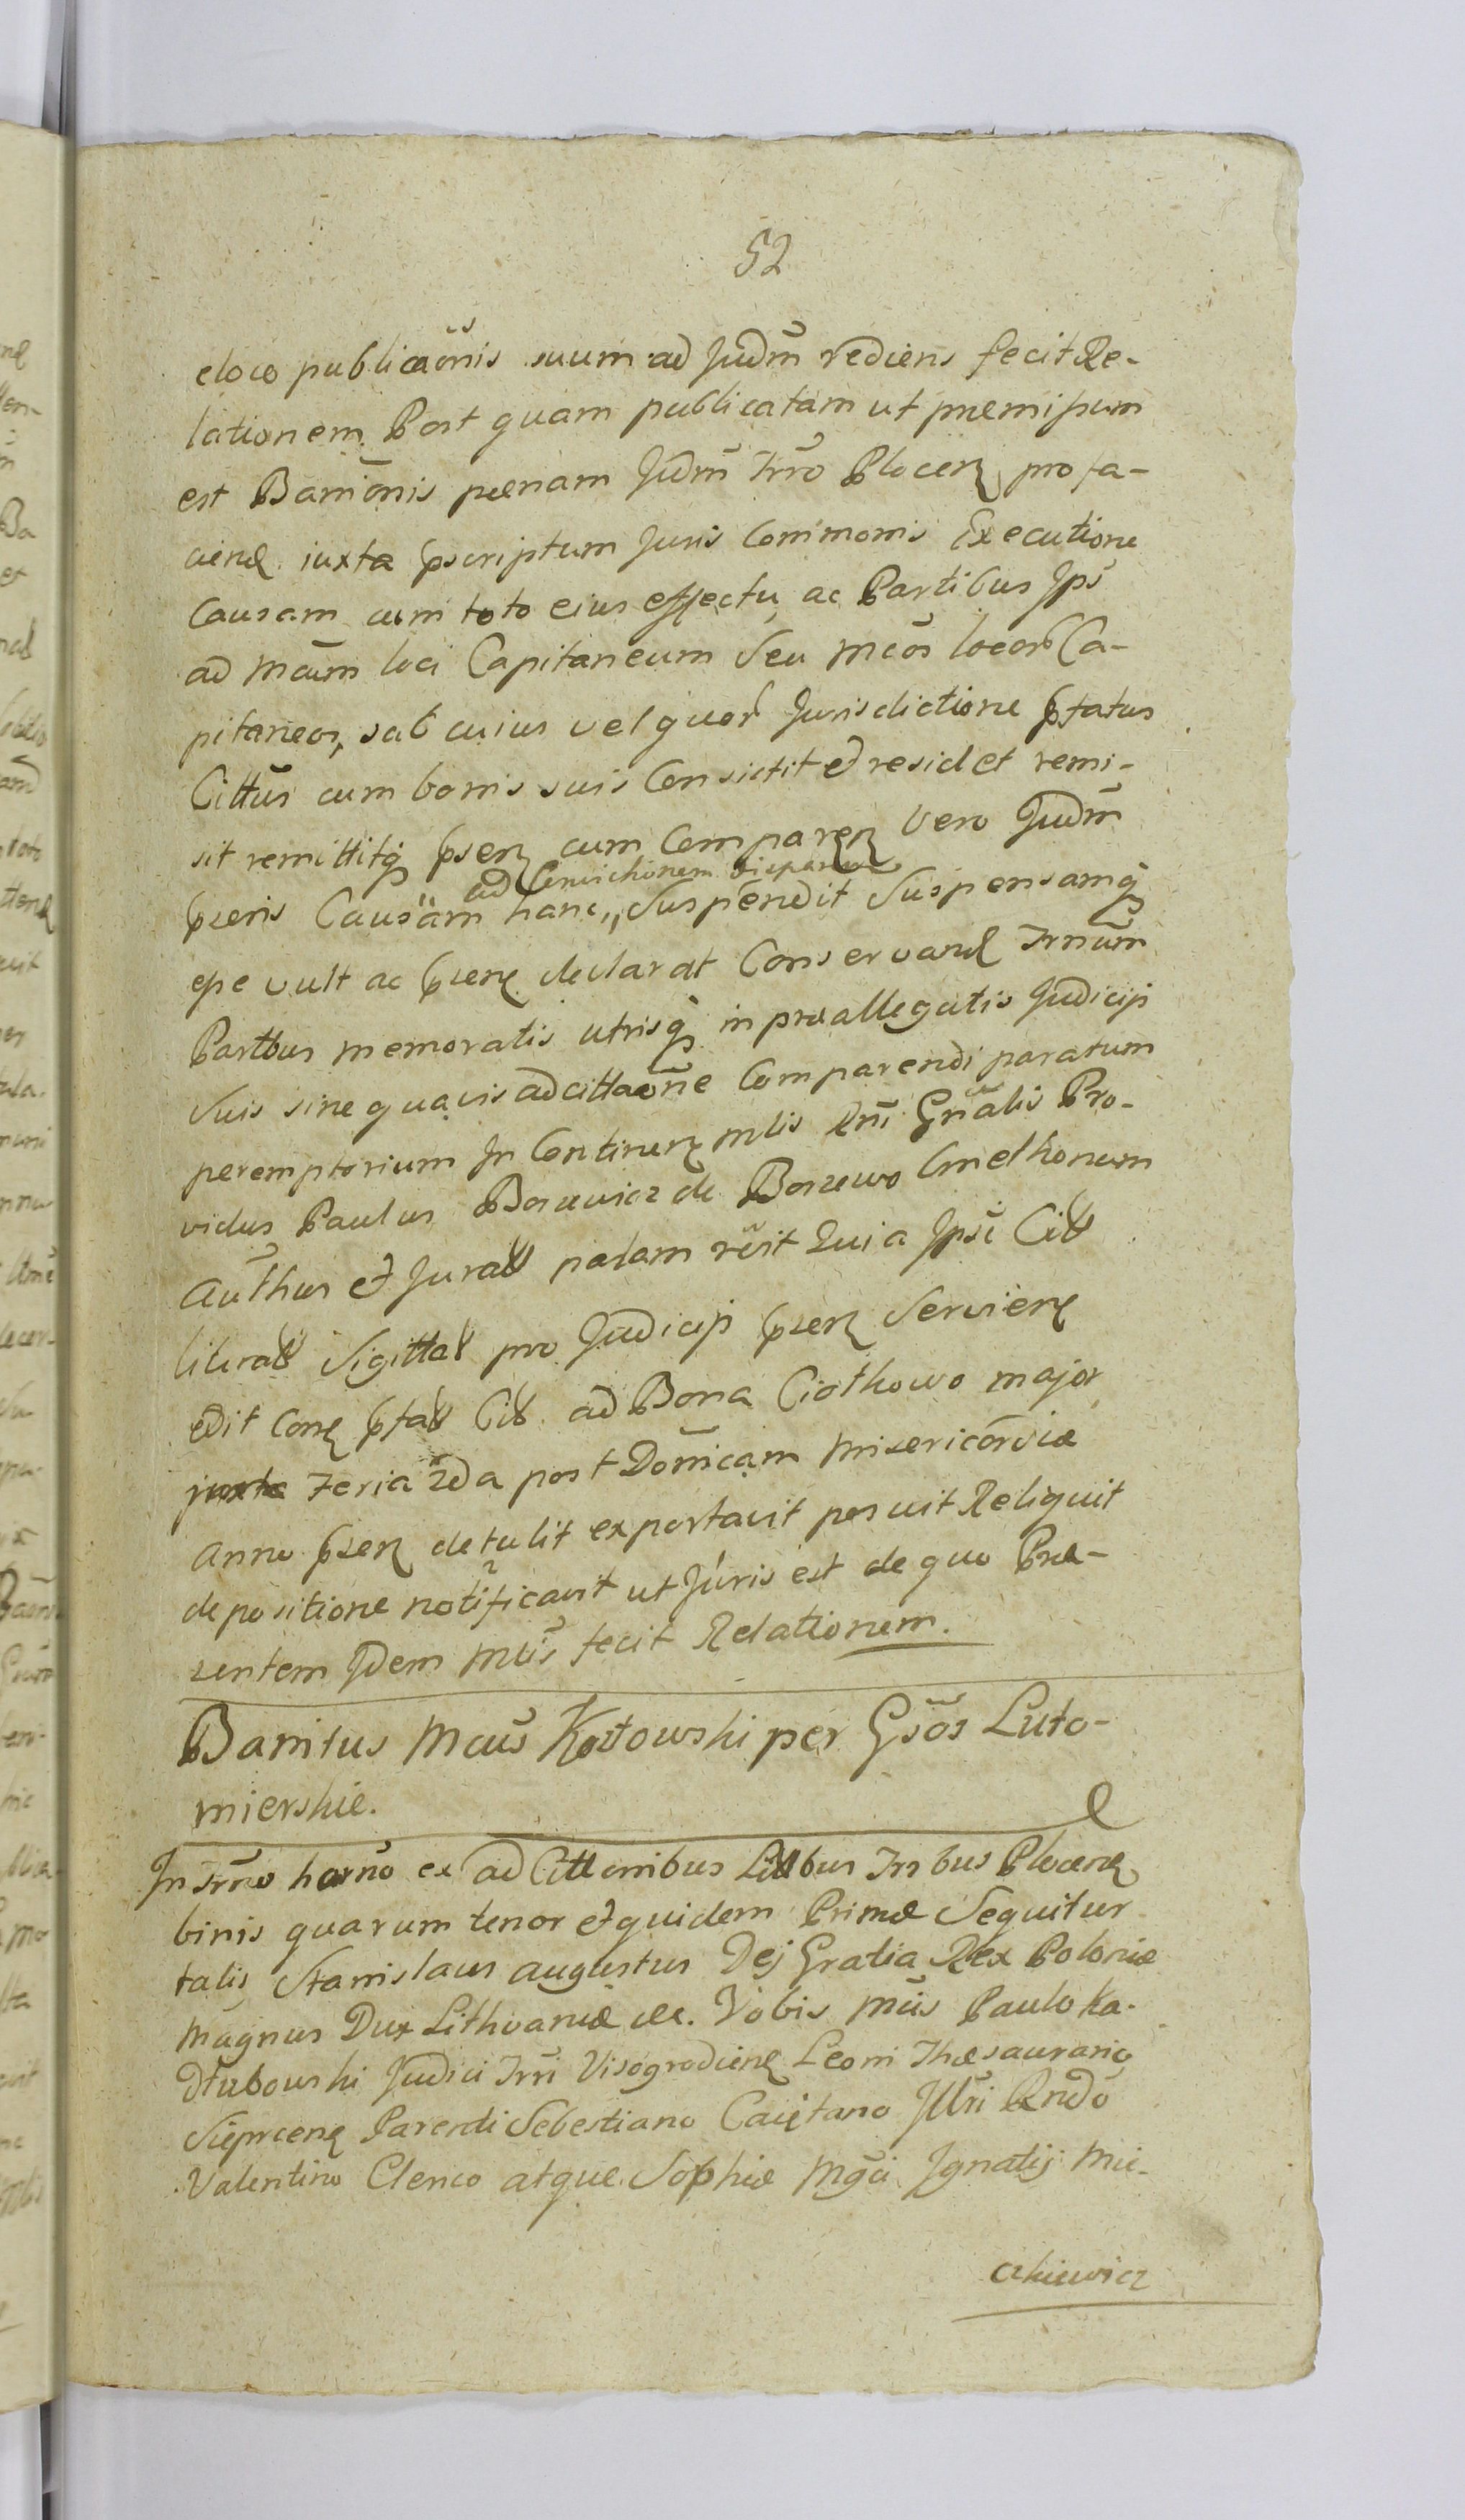 52
eloco publicaõnis suum ad Judm̃ rediens fecit Re-
lationem. Post quam publicatam ut præmissum
est Banniõnis pænam Judm̃ Trrõ Plocen pro fa-
ciend iuxta pscriptum Juris Commonis Executione
Causam cum toto eius effectu ac Partibus Ips̃
ad Mcum loci Capitaneum Seu Mcos̃ locor Ca-
pitaneos, sub cuius vel quor Jurisdictione pfatus
Cittus̃ cum bonis suis Consistit et residet remi-
sit remittitq psen cum Comparen Vero Judm̃
ad Convictionem
pseris Causam hanc,, Suspendit Suspensamq
esse vult ac psen declarat Conservand Trmum̃
Partbus memoratis utrisq in præallegatis Judicijs
Suis sine quavis adcittaõne Comparendi paratum
peremptorium In Continen mlis Rni Gnãlis Pro-
vidus Paulus Borzewicz de Borzewo Cmethonum
Authus et Jurat palam rẽit Quia Ipse Citt
literat Sigittat pro Judicijs psen Servien
edit Con pfat Cit ad Bona Ciothowo major
Feria 2da post Domĩcam Misericordiæ
Anno psen detulit exportavit posuit Reliquit
depositione notificavit ut Juris est de quo Præ-
sentem Idem Mlis̃ fecit Relationem.
Banitus Mcus̃ Kotowski per Gsõs Luto-
mierskie.
In trmo horno ex ad Cittonibus Littbus Trrbus Plocen
binis quarum tenor et quidem Primæ Sequitur
talis Stanislaus Augustus Dej Gratia Rex Poloniæ
Magnus Dux Lithvaniæ &c. Vobis Mcis Paulo Ka-
Dłubowski Judici Trri Visogrodien Leoni Thæsaurario
Sieprcen Parendi Sebestiano Caietano Illri Rndo
Valentino Clerico atque Sophiæ Mgci Ignatij Mic-
ckiewicz